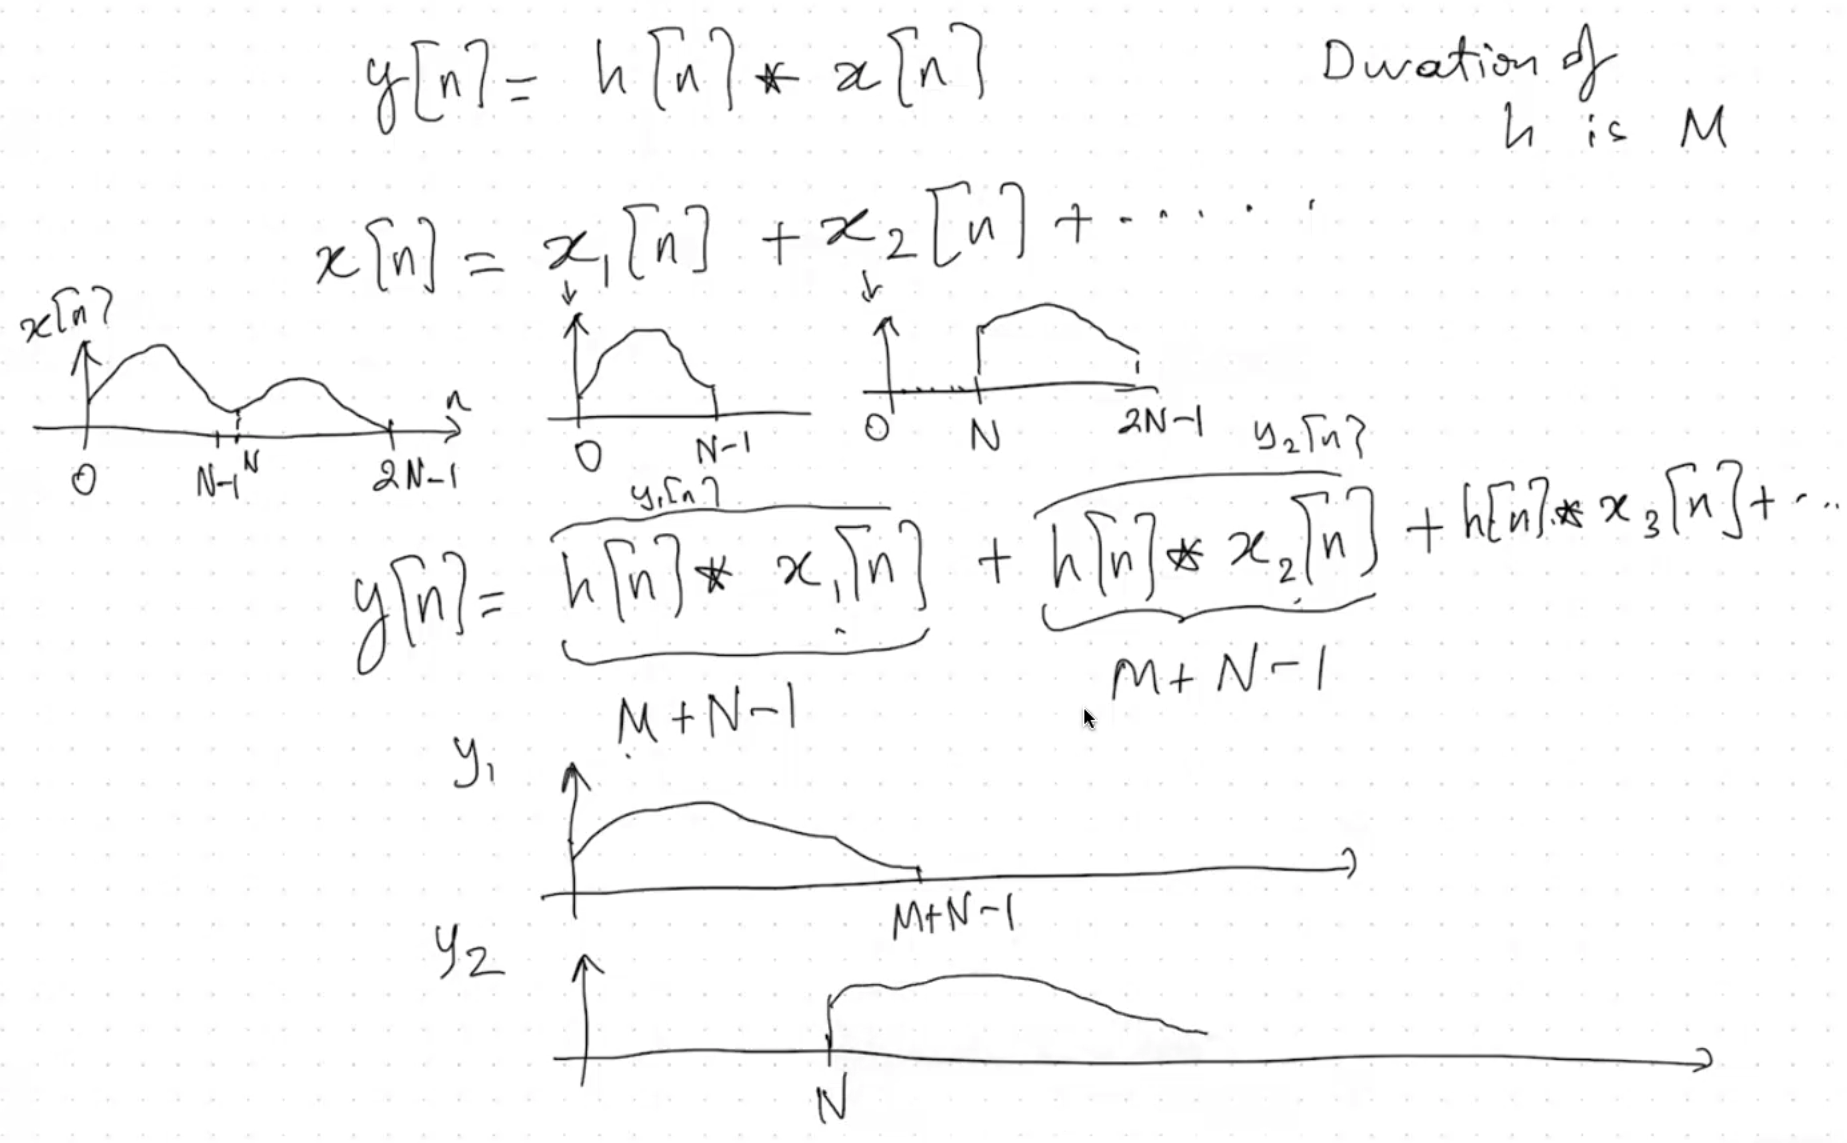 y[n] = h[n] * x[n]
Duration of
h is M
x[n] = x₁[n] + x₂[n] + ......
x[n]
n
0 N-1 N 2N-1
0 N-1
0 N 2N-1
y₁[n]
y₂[n]
y[n] = h[n] * x₁[n] + h[n] * x₂[n] + h[n] * x₃[n] + ...
M+N-1
M+N-1
y₁
M+N-1
y₂
N